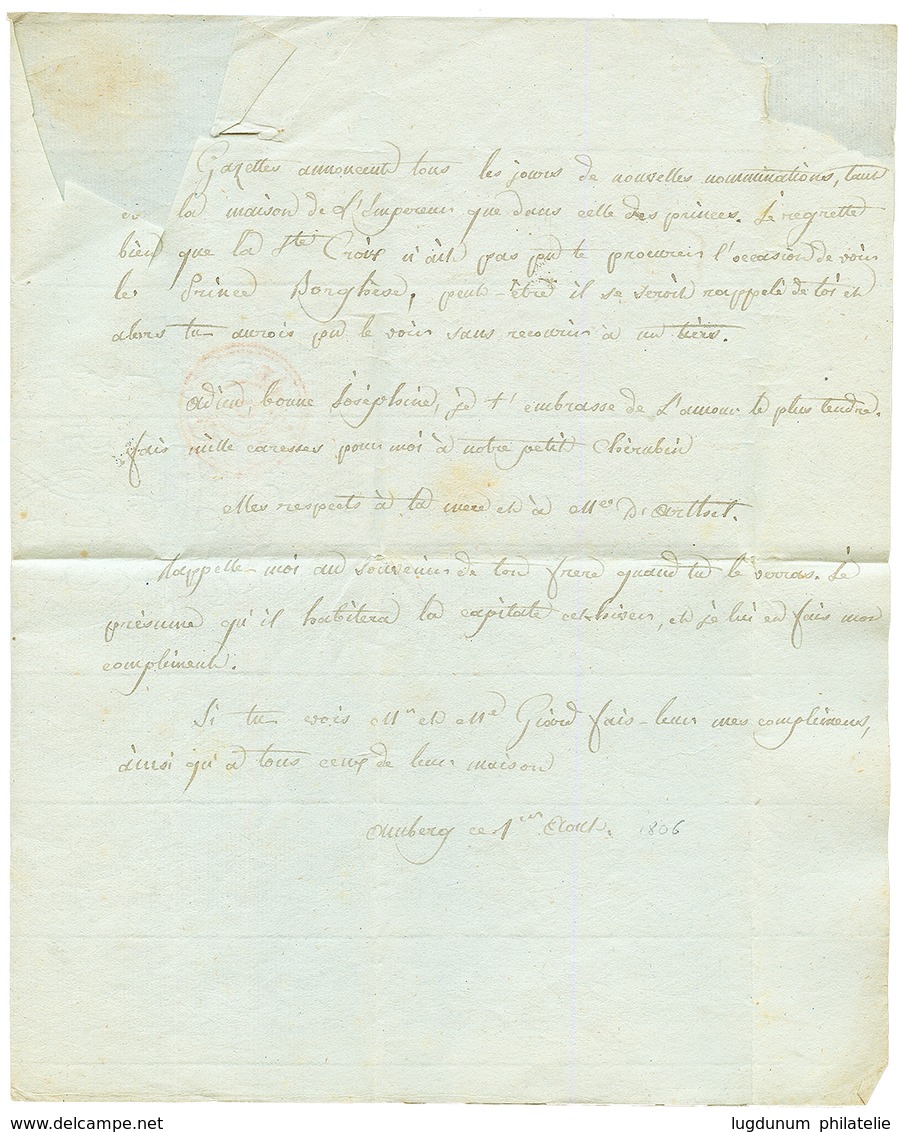 Gazettes annoncent tous les jours de nouvelles nomminations, tant
es la maison de L'Empereur que dans celle des princes. Je regrette
bien que la Ste Croix n'ait pas pu te procurer l'occasion de voir
le Prince Borghèse, peut-être il se seroit rappelé de toi et
alors tu aurois pu le voir sans recourir à un tiers.
adieu, bonne Joséphine, je t'embrasse de L'amour le plus tendre.
fais mille caresses pour moi à notre petit Chérubin
Mes respects à ta mere et à Me D'
Rappelle-moi au souvenir de ton frere quand tu le verras. Je
présume qu'il habitera la capitale cet hiver, et je lui en fais mon
compliment.
Si tu vois Mr et Me Giard fais-leur mes complimens,
ainsi qu'a tous ceux de leur maison
Amberg ce 1er Aout. 1806
www.delcampe.net
lugdunum philatelie